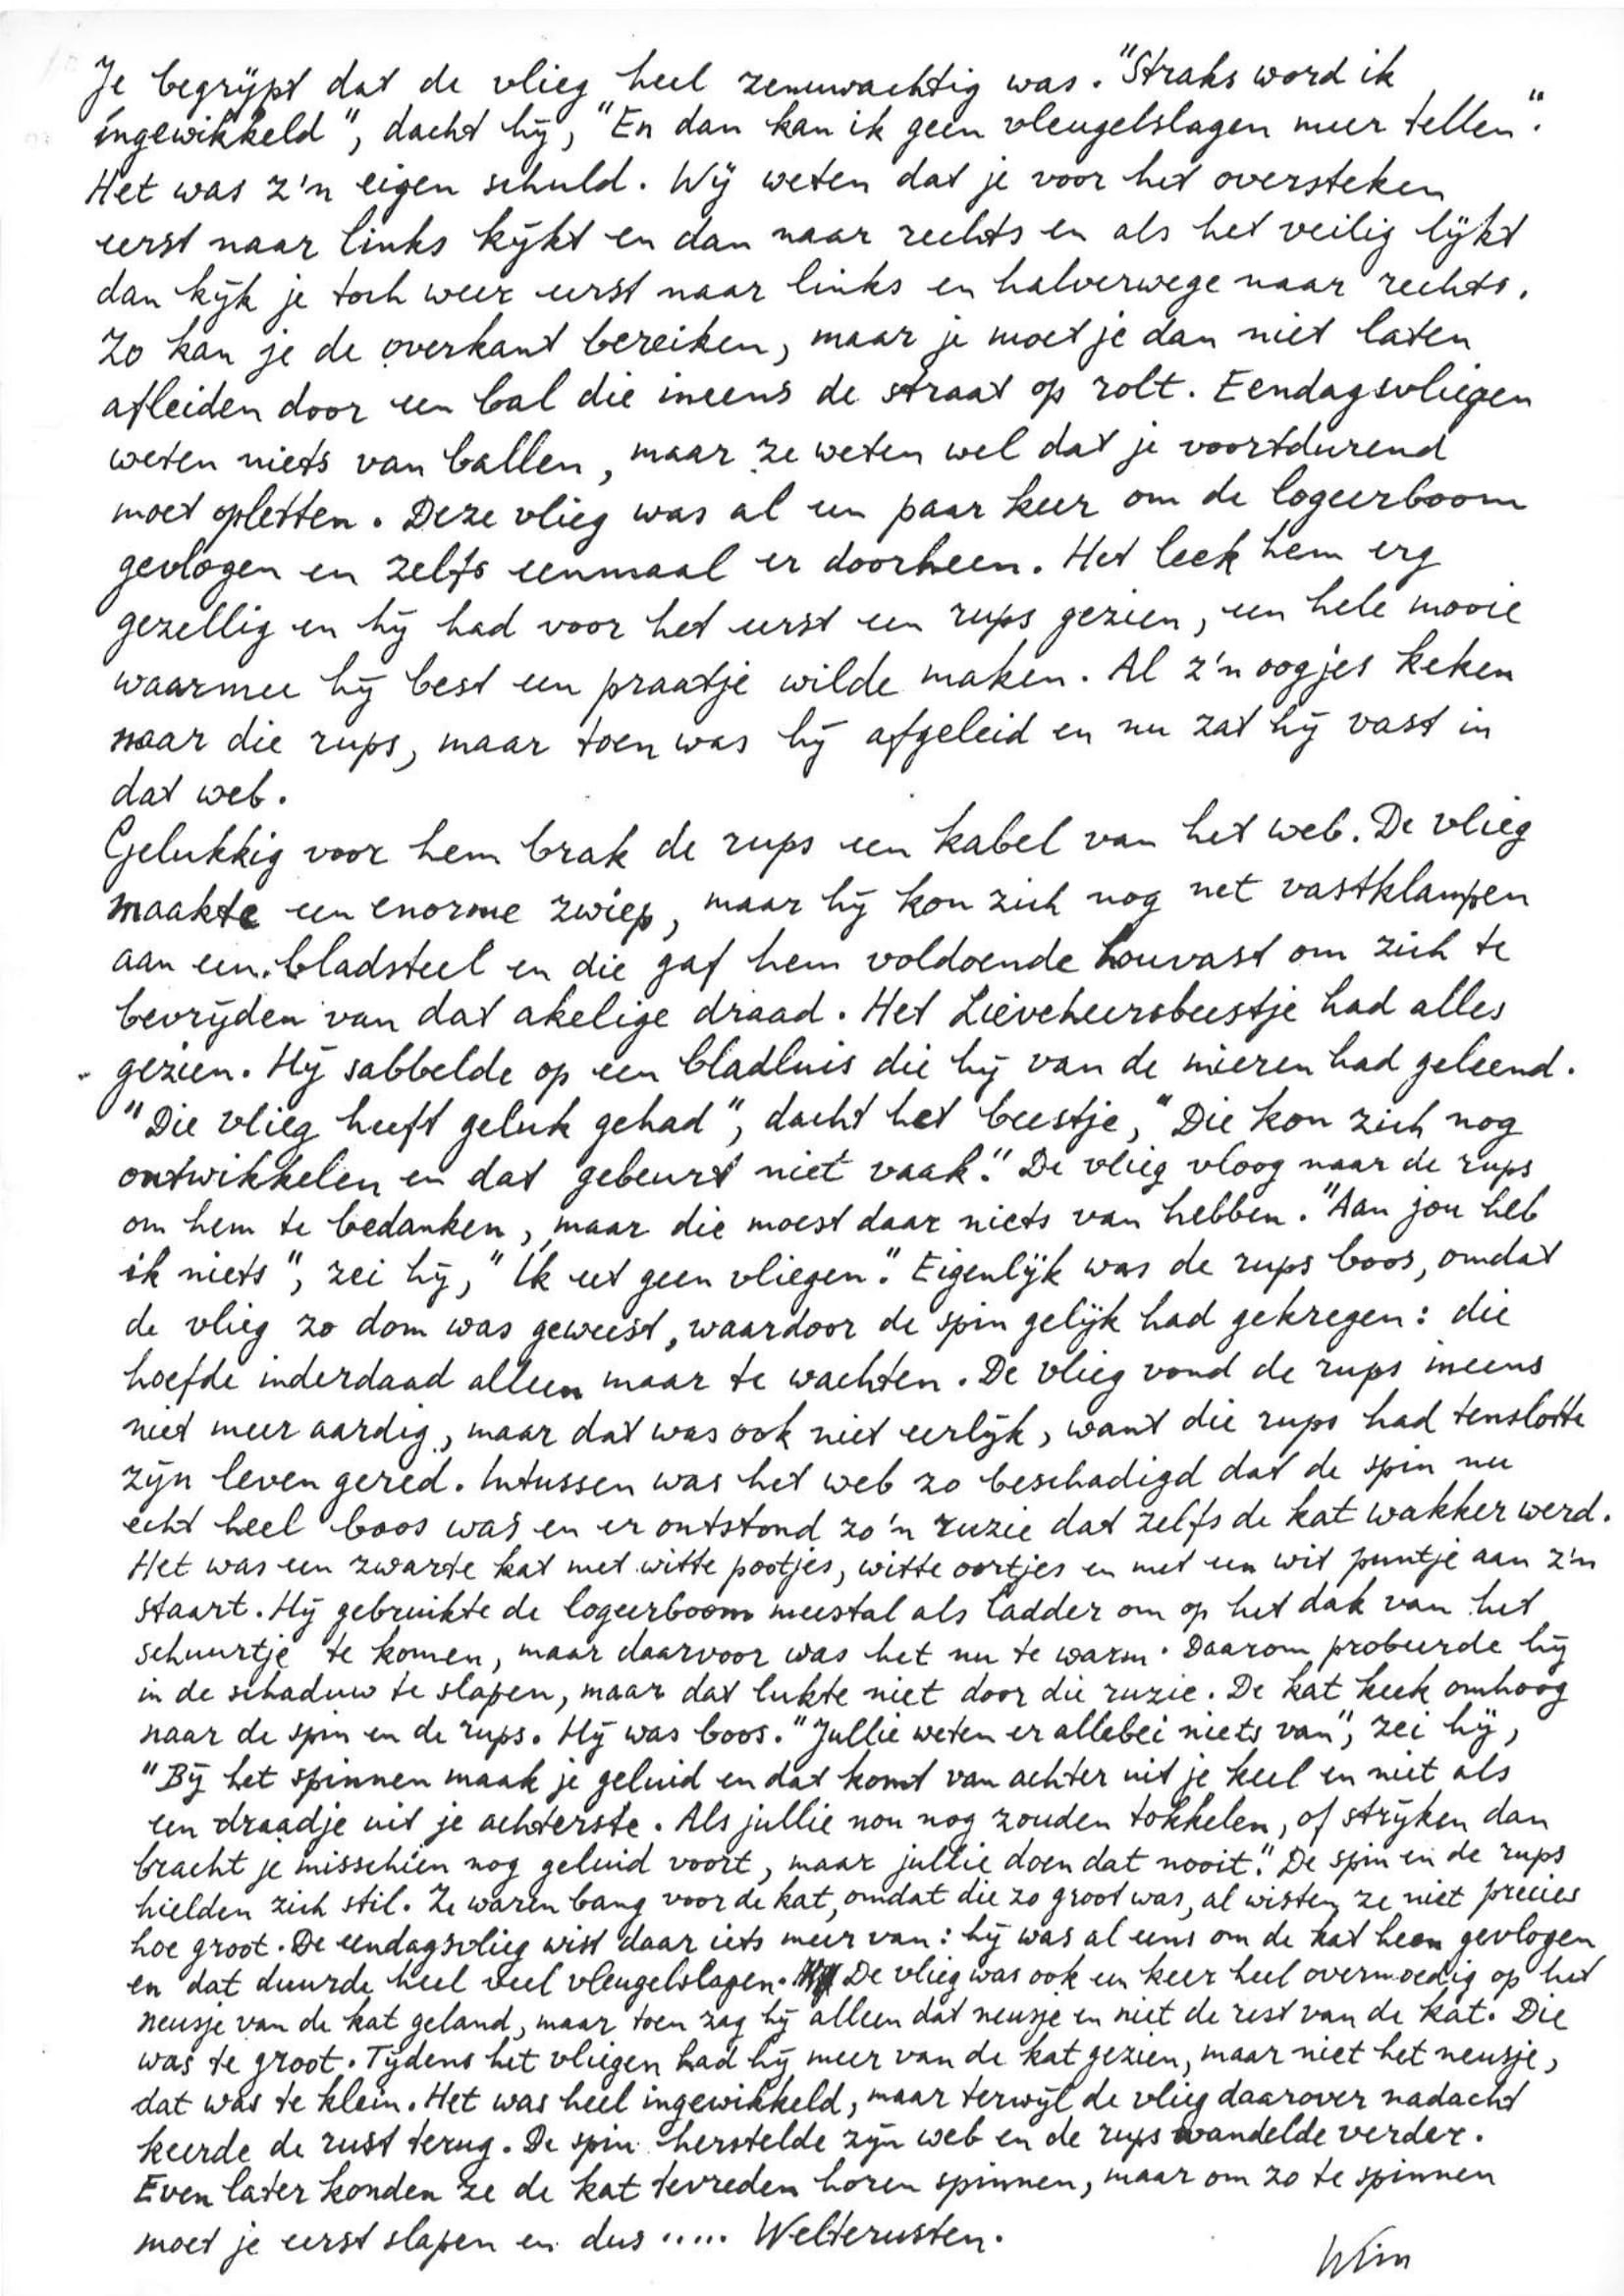 Je begrijpt dat de vlieg heel zenuwachtig was. "Straks word ik
ingewikkeld", dacht hij, "En dan kan ik geen vleugelslagen meer tellen".
Het was z'n eigen schuld. Wij weten dat je voor het oversteken
eerst naar links kijkt en dan naar rechts en als het veilig lijkt
dan kijk je toch weer eerst naar links en halverwege naar rechts.
Zo kan je de overkant bereiken, maar je moet je dan niet laten
afleiden door een bal die ineens de straat op rolt. Eendagsvliegen
weten niets van ballen, maar ze weten wel dat je voortdurend
moet opletten. Deze vlieg was al een paar keer om de logeerboom
gevlogen en zelfs eenmaal er doorheen. Het leek hem erg
gezellig en hij had voor het eerst een rups gezien, een hele mooie
waarmee hij best een praatje wilde maken. Al z'n oogjes keken
naar die rups, maar toen was hij afgeleid en nu zat hij vast in
dat web.
Gelukkig voor hem brak de rups een kabel van het web. De vlieg
maakte een enorme zwiep, maar hij kon zich nog net vastklampen
aan een bladsteel en die gaf hem voldoende houvast om zich te
bevrijden van dat akelige draad. Het Lieveheersbeestje had alles
gezien. Hij sabbelde op een bladluis die hij van de mieren had geleend.
"Die vlieg heeft geluk gehad", dacht het beestje, "Die kon zich nog
ontwikkelen en dat gebeurt niet vaak." De vlieg vloog naar de rups
om hem te bedanken, maar die moest daar niets van hebben. "Aan jou heb
ik niets", zei hij, "Ik eet geen vliegen." Eigenlijk was de rups boos, omdat
de vlieg zo dom was geweest, waardoor de spin gelijk had gekregen: die
hoefde inderdaad alleen maar te wachten. De vlieg vond de rups ineens
niet meer aardig, maar dat was ook niet eerlijk, want die rups had tenslotte
zijn leven gered. Intussen was het web zo beschadigd dat de spin nu
echt heel boos was en er ontstond zo'n ruzie dat zelfs de kat wakker werd.
Het was een zwarte kat met witte pootjes, witte oortjes en met een wit puntje aan z'n
staart. Hij gebruikte de logeerboom meestal als ladder om op het dak van het
schuurtje te komen, maar daarvoor was het nu te warm. Daarom probeerde hij
in de schaduw te slapen, maar dat lukte niet door die ruzie. De kat keek omhoog
naar de spin en de rups. Hij was boos. "Jullie weten er allebei niets van", zei hij,
"Bij het spinnen maak je geluid en dat komt van achter uit je keel en niet als
een draadje uit je achterste. Als jullie nou nog zouden tokkelen, of strijken dan
bracht je misschien nog geluid voort, maar jullie doen dat nooit." De spin en de rups
hielden zich stil. Ze waren bang voor de kat, omdat die zo groot was, al wisten ze niet precies
hoe groot. De eendagsvlieg wist daar iets meer van: hij was al eens om de kat heen gevlogen
en dat duurde heel veel vleugelslagen. De vlieg was ook een keer heel overmoedig op het
neusje van de kat geland, maar toen zag hij alleen dat neusje en niet de rest van de kat. Die
was te groot. Tijdens het vliegen had hij meer van de kat gezien, maar niet het neusje,
dat was te klein. Het was heel ingewikkeld, maar terwijl de vlieg daarover nadacht
keerde de rust terug. De spin herstelde zijn web en de rups wandelde verder.
Even later konden ze de kat tevreden horen spinnen, maar om zo te spinnen
moet je eerst slapen en dus ..... Welterusten.
Wim